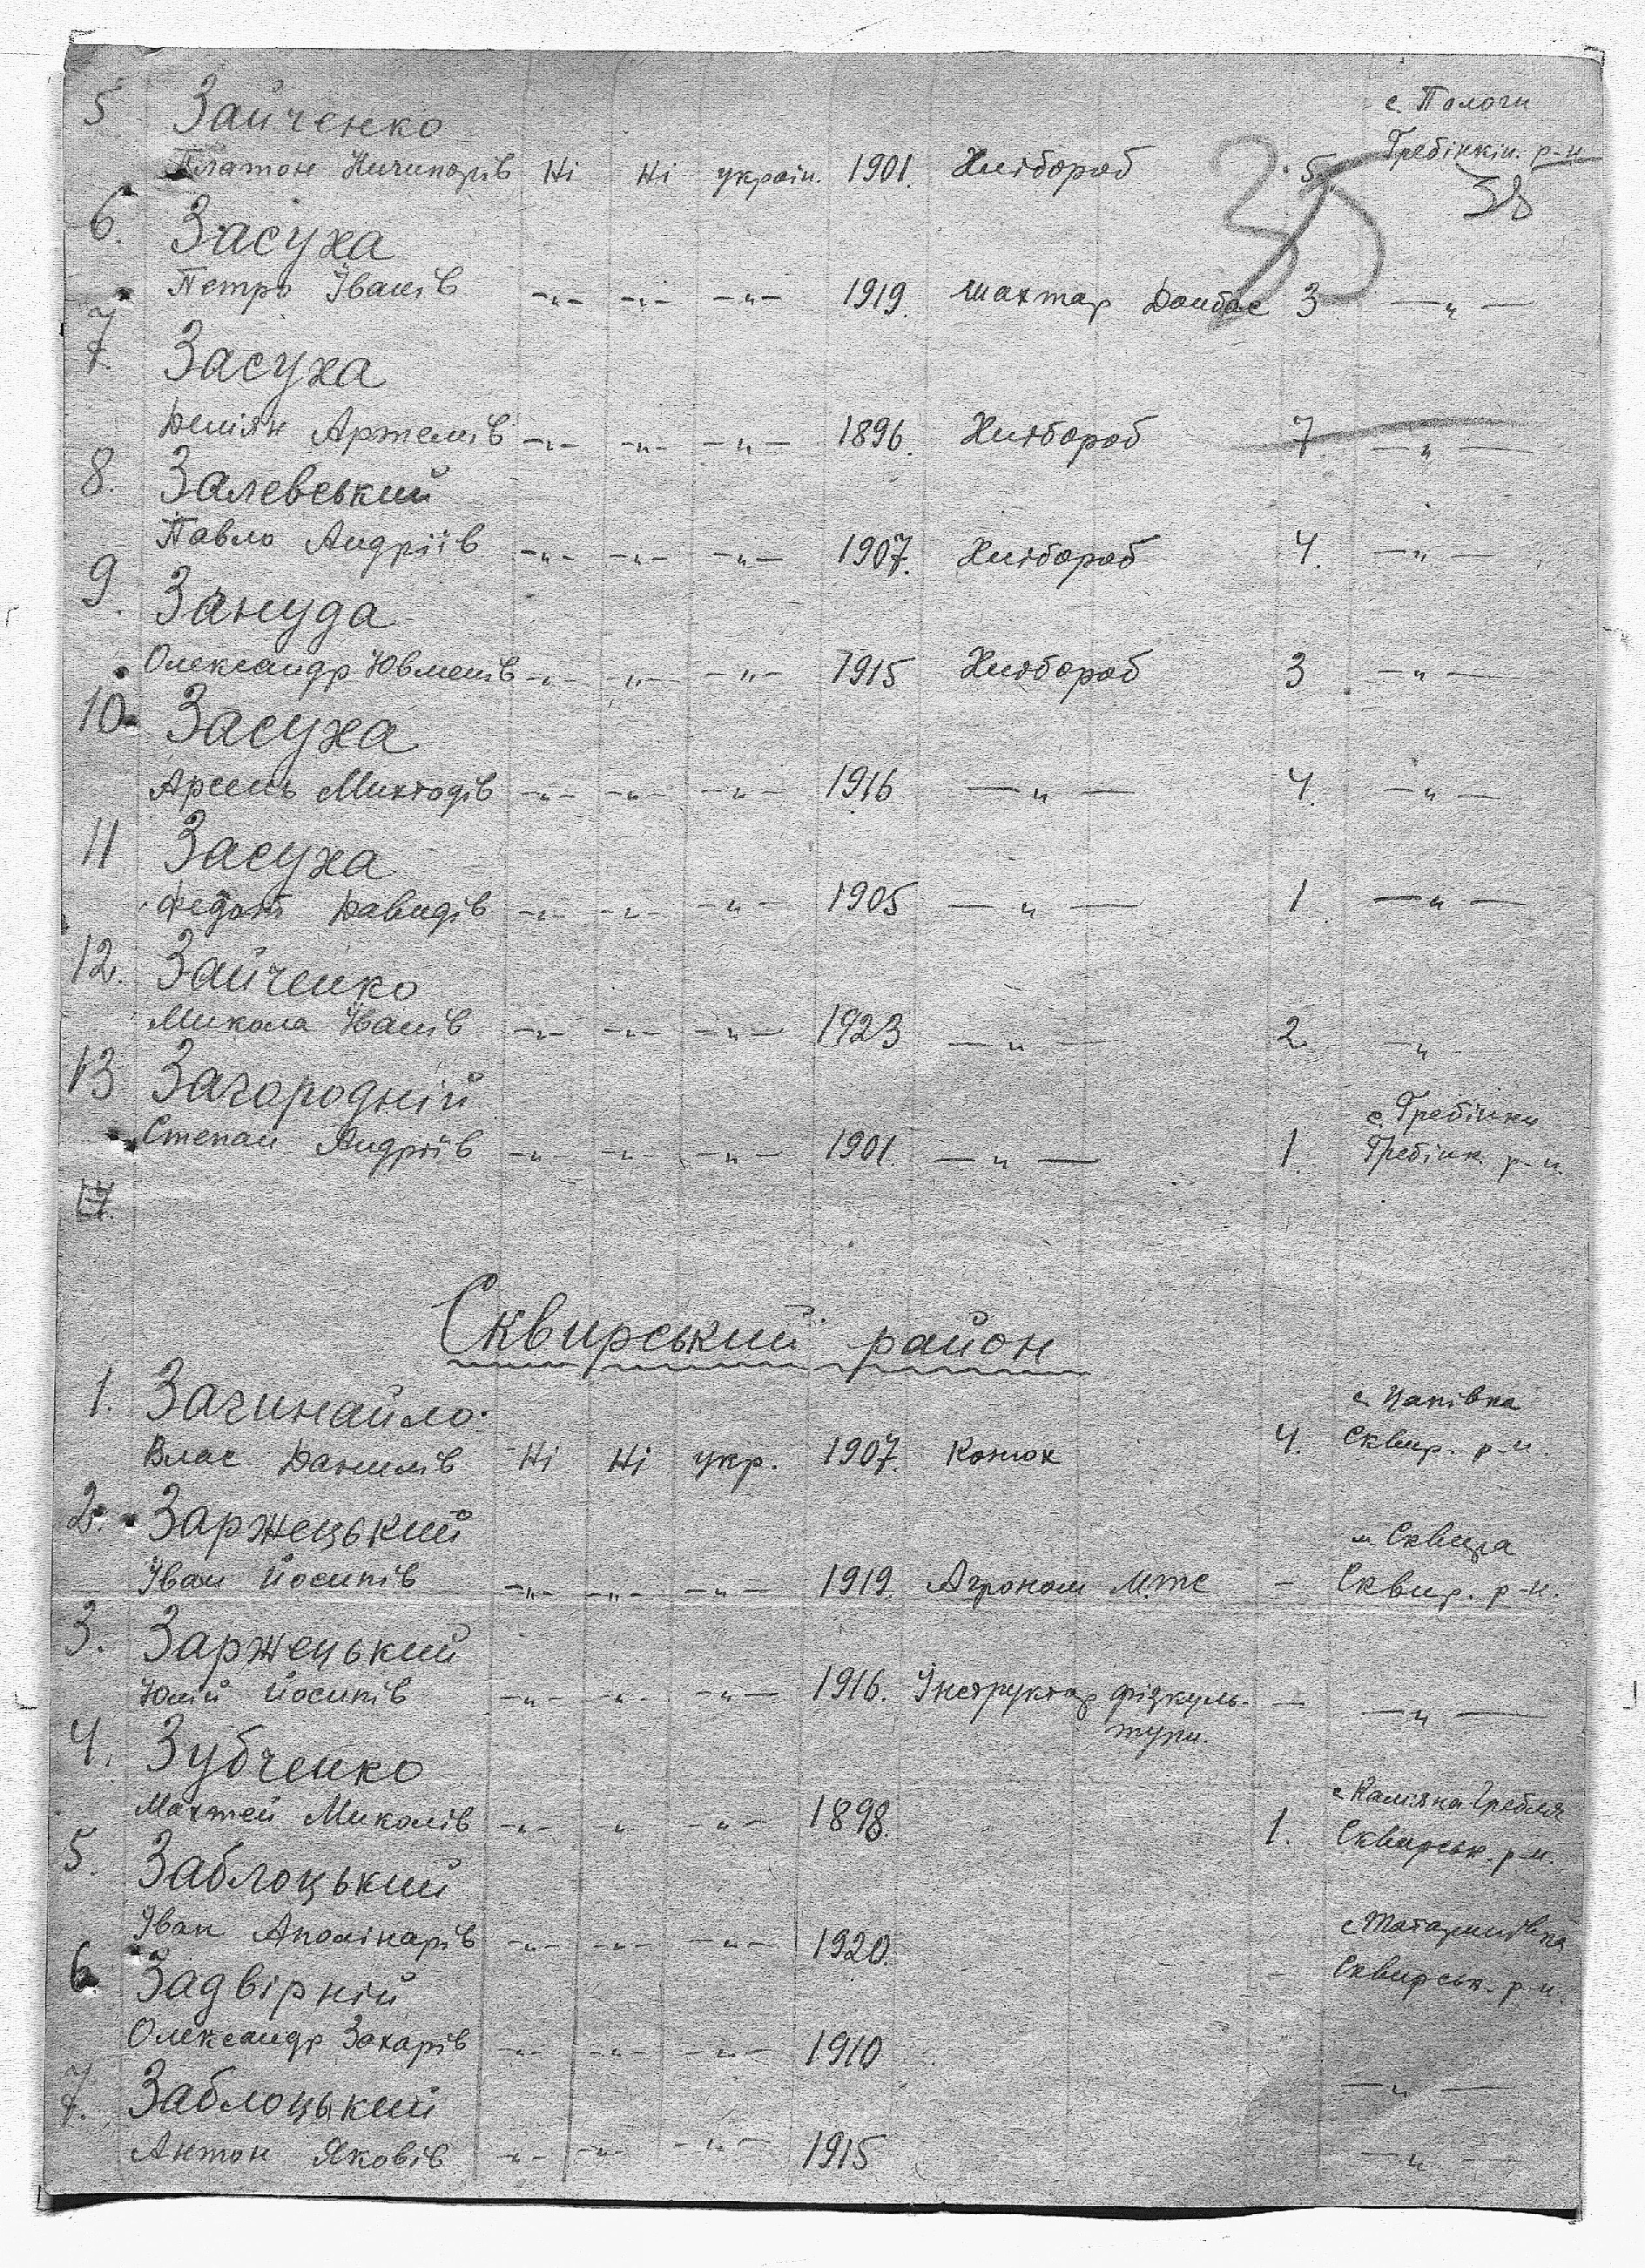 5 Зайченко с. Пологи
Платон Ничипорів Ні Ні україн. 1901. Хлібороб 5. Гребінкін. р-н
38
6. Засуха
Петро Іванів -„- -„- -„- 1919. шахтар Донбас 3 -„-
7. Засуха
Демян Артемів -„- -„- -„- 1896. Хлібороб 7. -„-
8. Залевський
Павло Андріїв -„- -„- -„- 1907. Хлібороб 4. -„-
9. Зануда
Олександр Ювменів -„- -„- -„- 1915 Хлібороб 3 -„-
10. Засуха
Арсень Михтодів -„- -„- -„- 1916 -„- 4. -„-
11 Засуха
Федот Давидів -„- -„- -„- 1905 -„- 1. -„-
12. Зайченко
Микола Іванів -„- -„- -„- 1923 -„- 2. -„-
13 Загородній с. Гребінки
Степан Андріїв -„- -„- -„- 1901. -„- 1. Гребінк. р-н.
Сквирський район
1. Зачинайло с.
Влас Данилів Ні Ні укр. 1907. Конюх 4. Сквир. р-н.
2. Заржецький м Сквира
Іван Йосипів -„- -„- -„- 1919. Агроном М.т.с - Сквир. р-н.
3. Заржецький
Юлій Йосипів -„- -„- -„- 1916. Інструктор фізкуль- - -„-
тури.
4. Зубченко с Камяна Гребля
Махтей Миколів -„- „ -„- 1898. 1. Сквирськ. р-н.
5. Заблоцький
Іван Аполінарів -„- -„- -„- 1920. с Татаринівка
6 Задвірній - Сквирськ. р-н.
Олександр Захарів -„- -„- -„- 1910
7. Заблоцький -„-
Антон Яковів -„- -„- -„- 1915 -„-